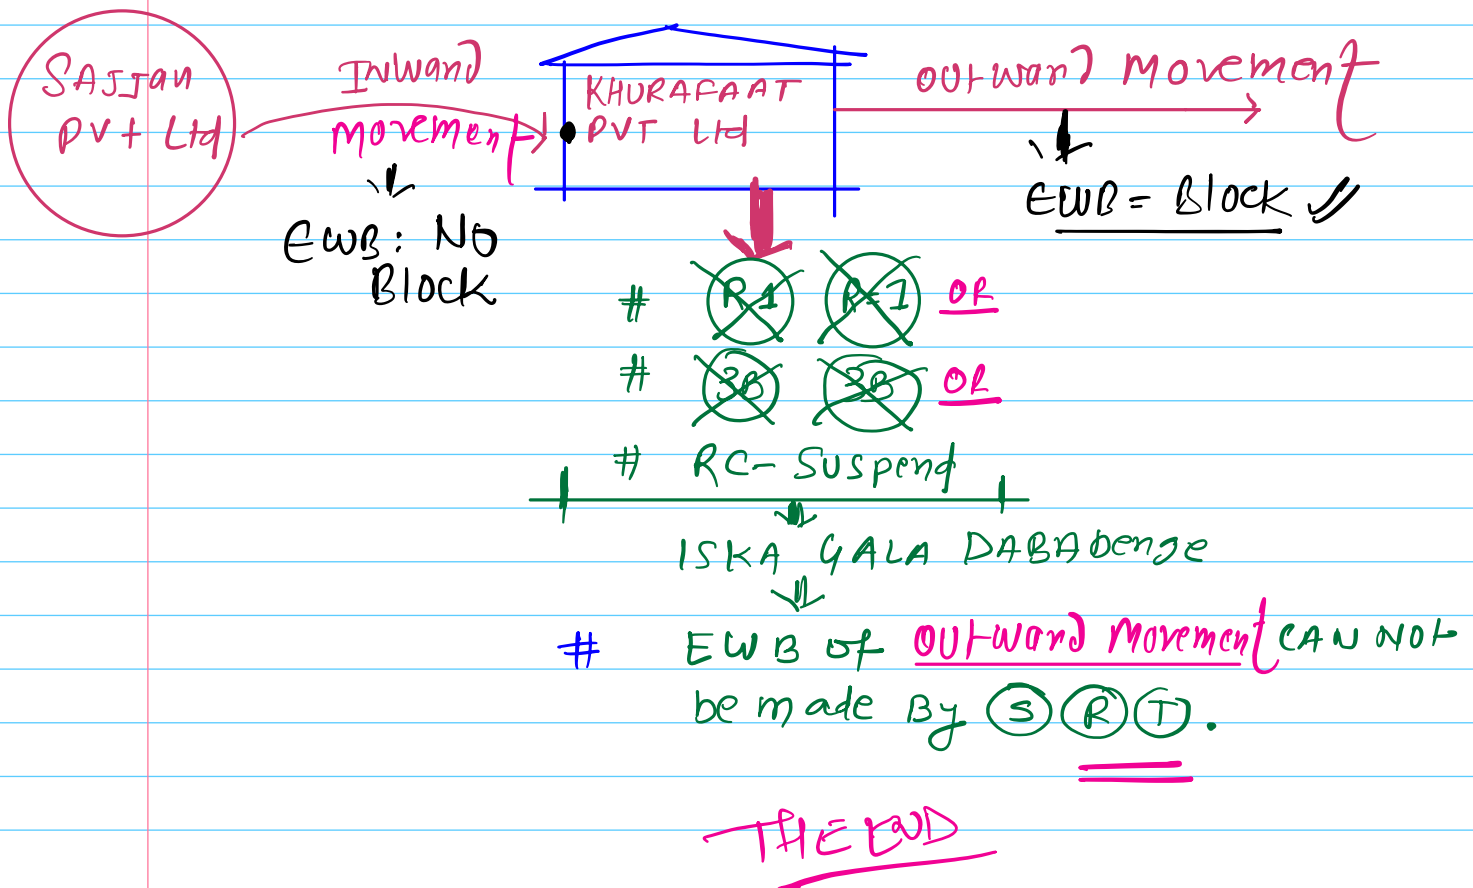 SAJJan
PVt Ltd
INward
Movement
EWB: No
Block
KHURAFAAT
PVT Ltd
outward Movement
EWB = Block
# R1 R-1 OR
# 3B 3B OR
# RC- Suspend
ISKA GALA DABADenge
# EWB of outward Movement CAN NOt
be made By S R T.
THE END